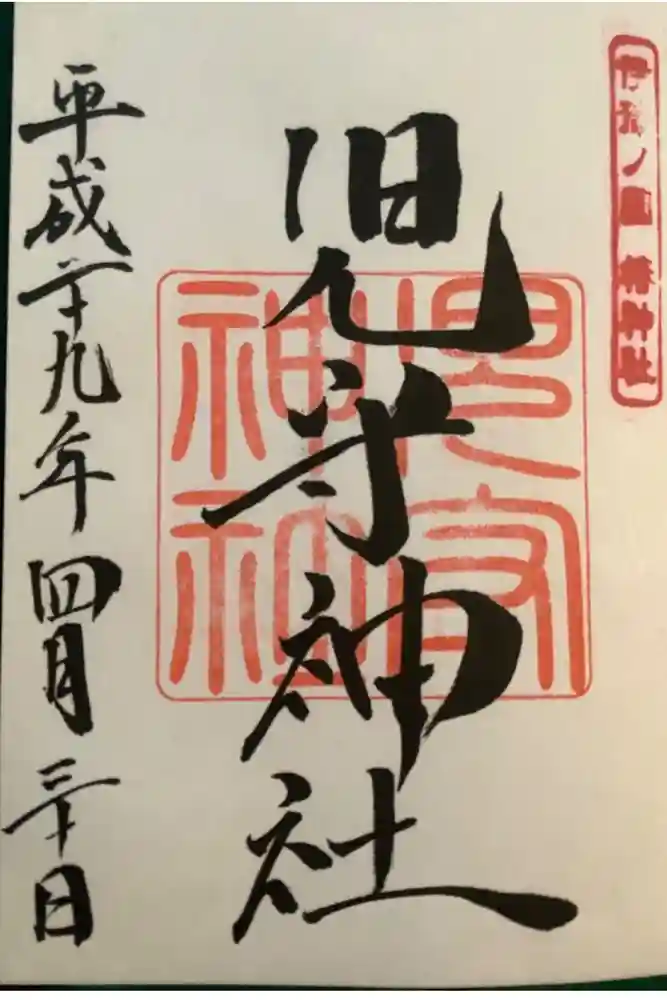 伊豫ノ國 椿神社
児守神社
兒守神社
平成二十九年四月三十日